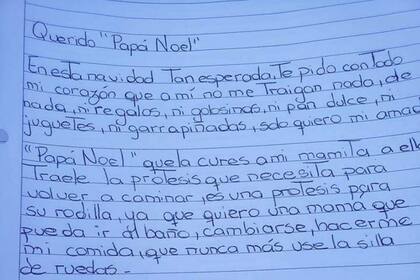 Querido "Papá Noel"
En esta navidad Tan esperada, Te pido con Todo
mi corazón que a mí no me Traigan nada, de
nada, ni regalos, ni golosinas, ni pan dulce, ni
juguetes, ni garrapiñadas, solo quiero mi amado
"Papá Noel" que la cures a mi mamita a ella
Traele la protesis que necesita para
volver a caminar, es una protesis para
su rodilla, ya que quiero una mamá que
pueda ir al baño, cambiarse, hacerme
mi comida, que nunca más use la silla
de ruedas.-